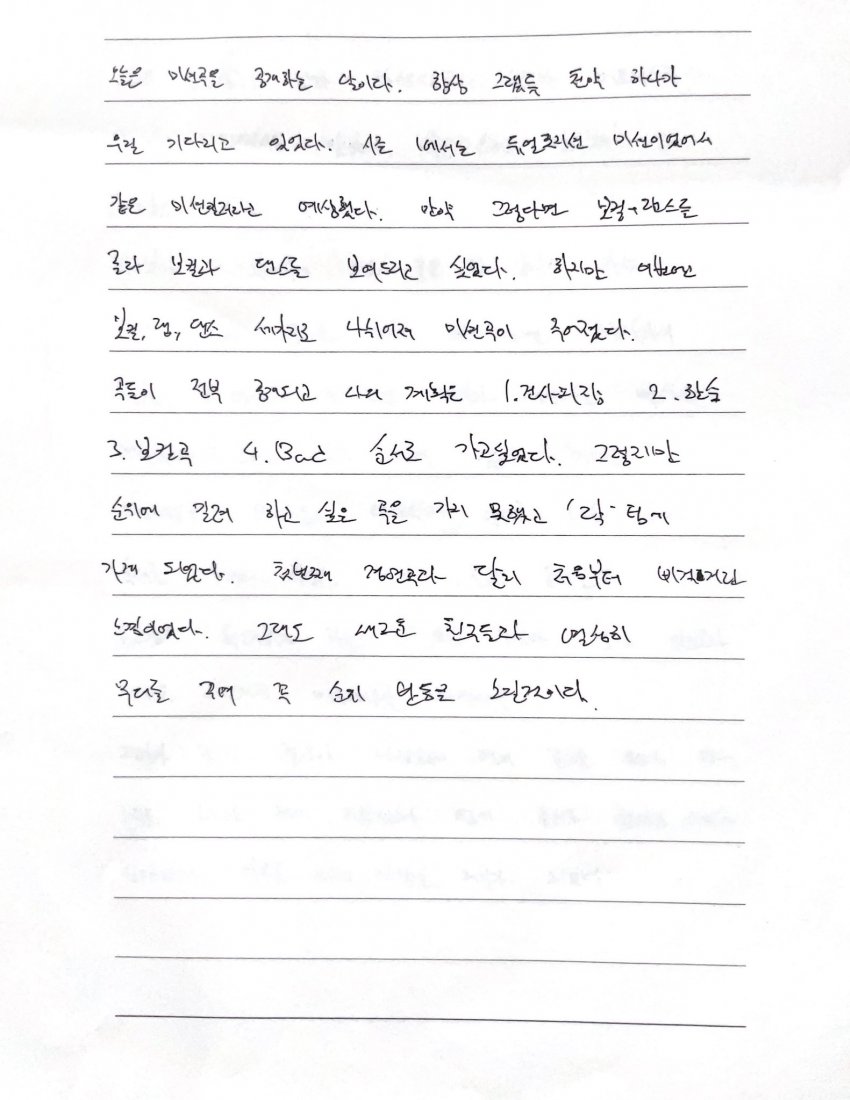 오늘은 미션곡을 공개하는 날이다. 항상 그랬듯 전략 하나가
우릴 기다리고 있었다. 시즌 1에서는 듀얼포지션 미션이었어서
같은 미션일거라고 예상했다. 만약 그렇다면 보컬+댄스를
골라 보컬과 댄스를 보여드리고 싶었다. 하지만 이번엔
보컬, 랩, 댄스 세가지로 나뉘어져 미션곡이 주어졌다.
곡들이 전부 공개되고 나의 계획은 1. 2.한숨
3.보컬곡 4.Bad 순서로 가고싶었다. 그렇지만
순위에 밀려 하고 싶은 곡은 가지 못했고 '락' 팀에
가게 되었다. 첫번째 경연곡과 달리 처음부터 삐걱거림
느낌이었다. 그래도 새로운 친구들과 열심히
무대를 꾸며 꼭 순위 안으로